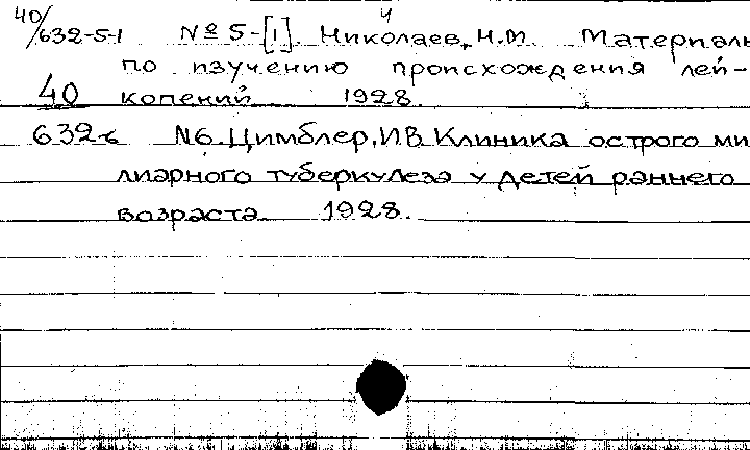 40/632-5-1 № 5-[1] Николаев, Н.М. Материалы
по изучению происхождения лей-
40 копений 1928.
632-6 N6. Цимблер, И.В. Клиника острого ми
лиарного туберкулеза у детей раннего
возраста 1928.